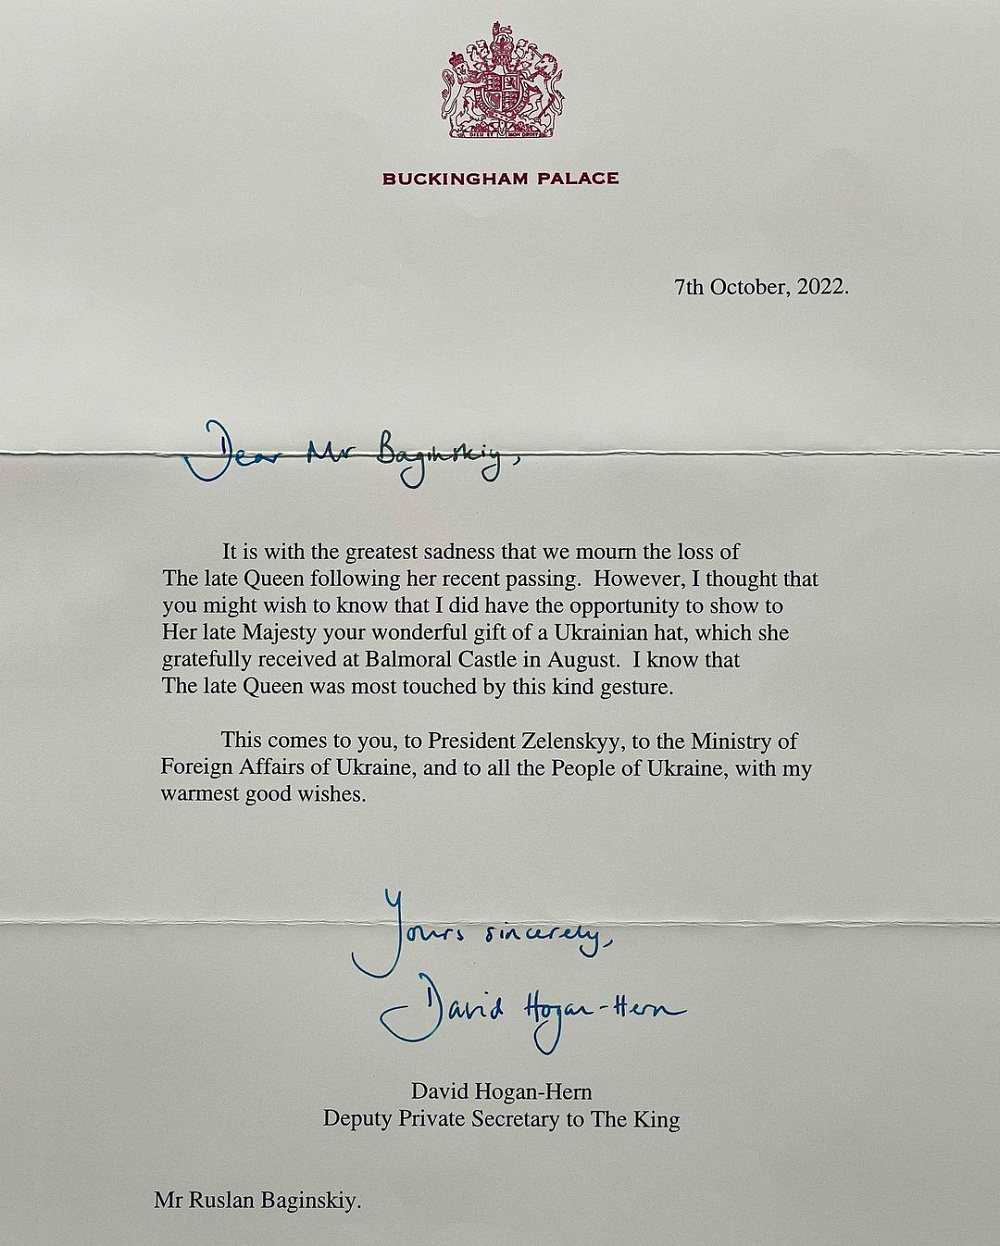 DIEU ET MON DROIT
BUCKINGHAM PALACE
7th October, 2022.
Dear Mr Baginskiy,
It is with the greatest sadness that we mourn the loss of
The late Queen following her recent passing. However, I thought that
you might wish to know that I did have the opportunity to show to
Her late Majesty your wonderful gift of a Ukrainian hat, which she
gratefully received at Balmoral Castle in August. I know that
The late Queen was most touched by this kind gesture.
This comes to you, to President Zelenskyy, to the Ministry of
Foreign Affairs of Ukraine, and to all the People of Ukraine, with my
warmest good wishes.
Yours sincerely,
David Hogan-Hern
David Hogan-Hern
Deputy Private Secretary to The King
Mr Ruslan Baginskiy.